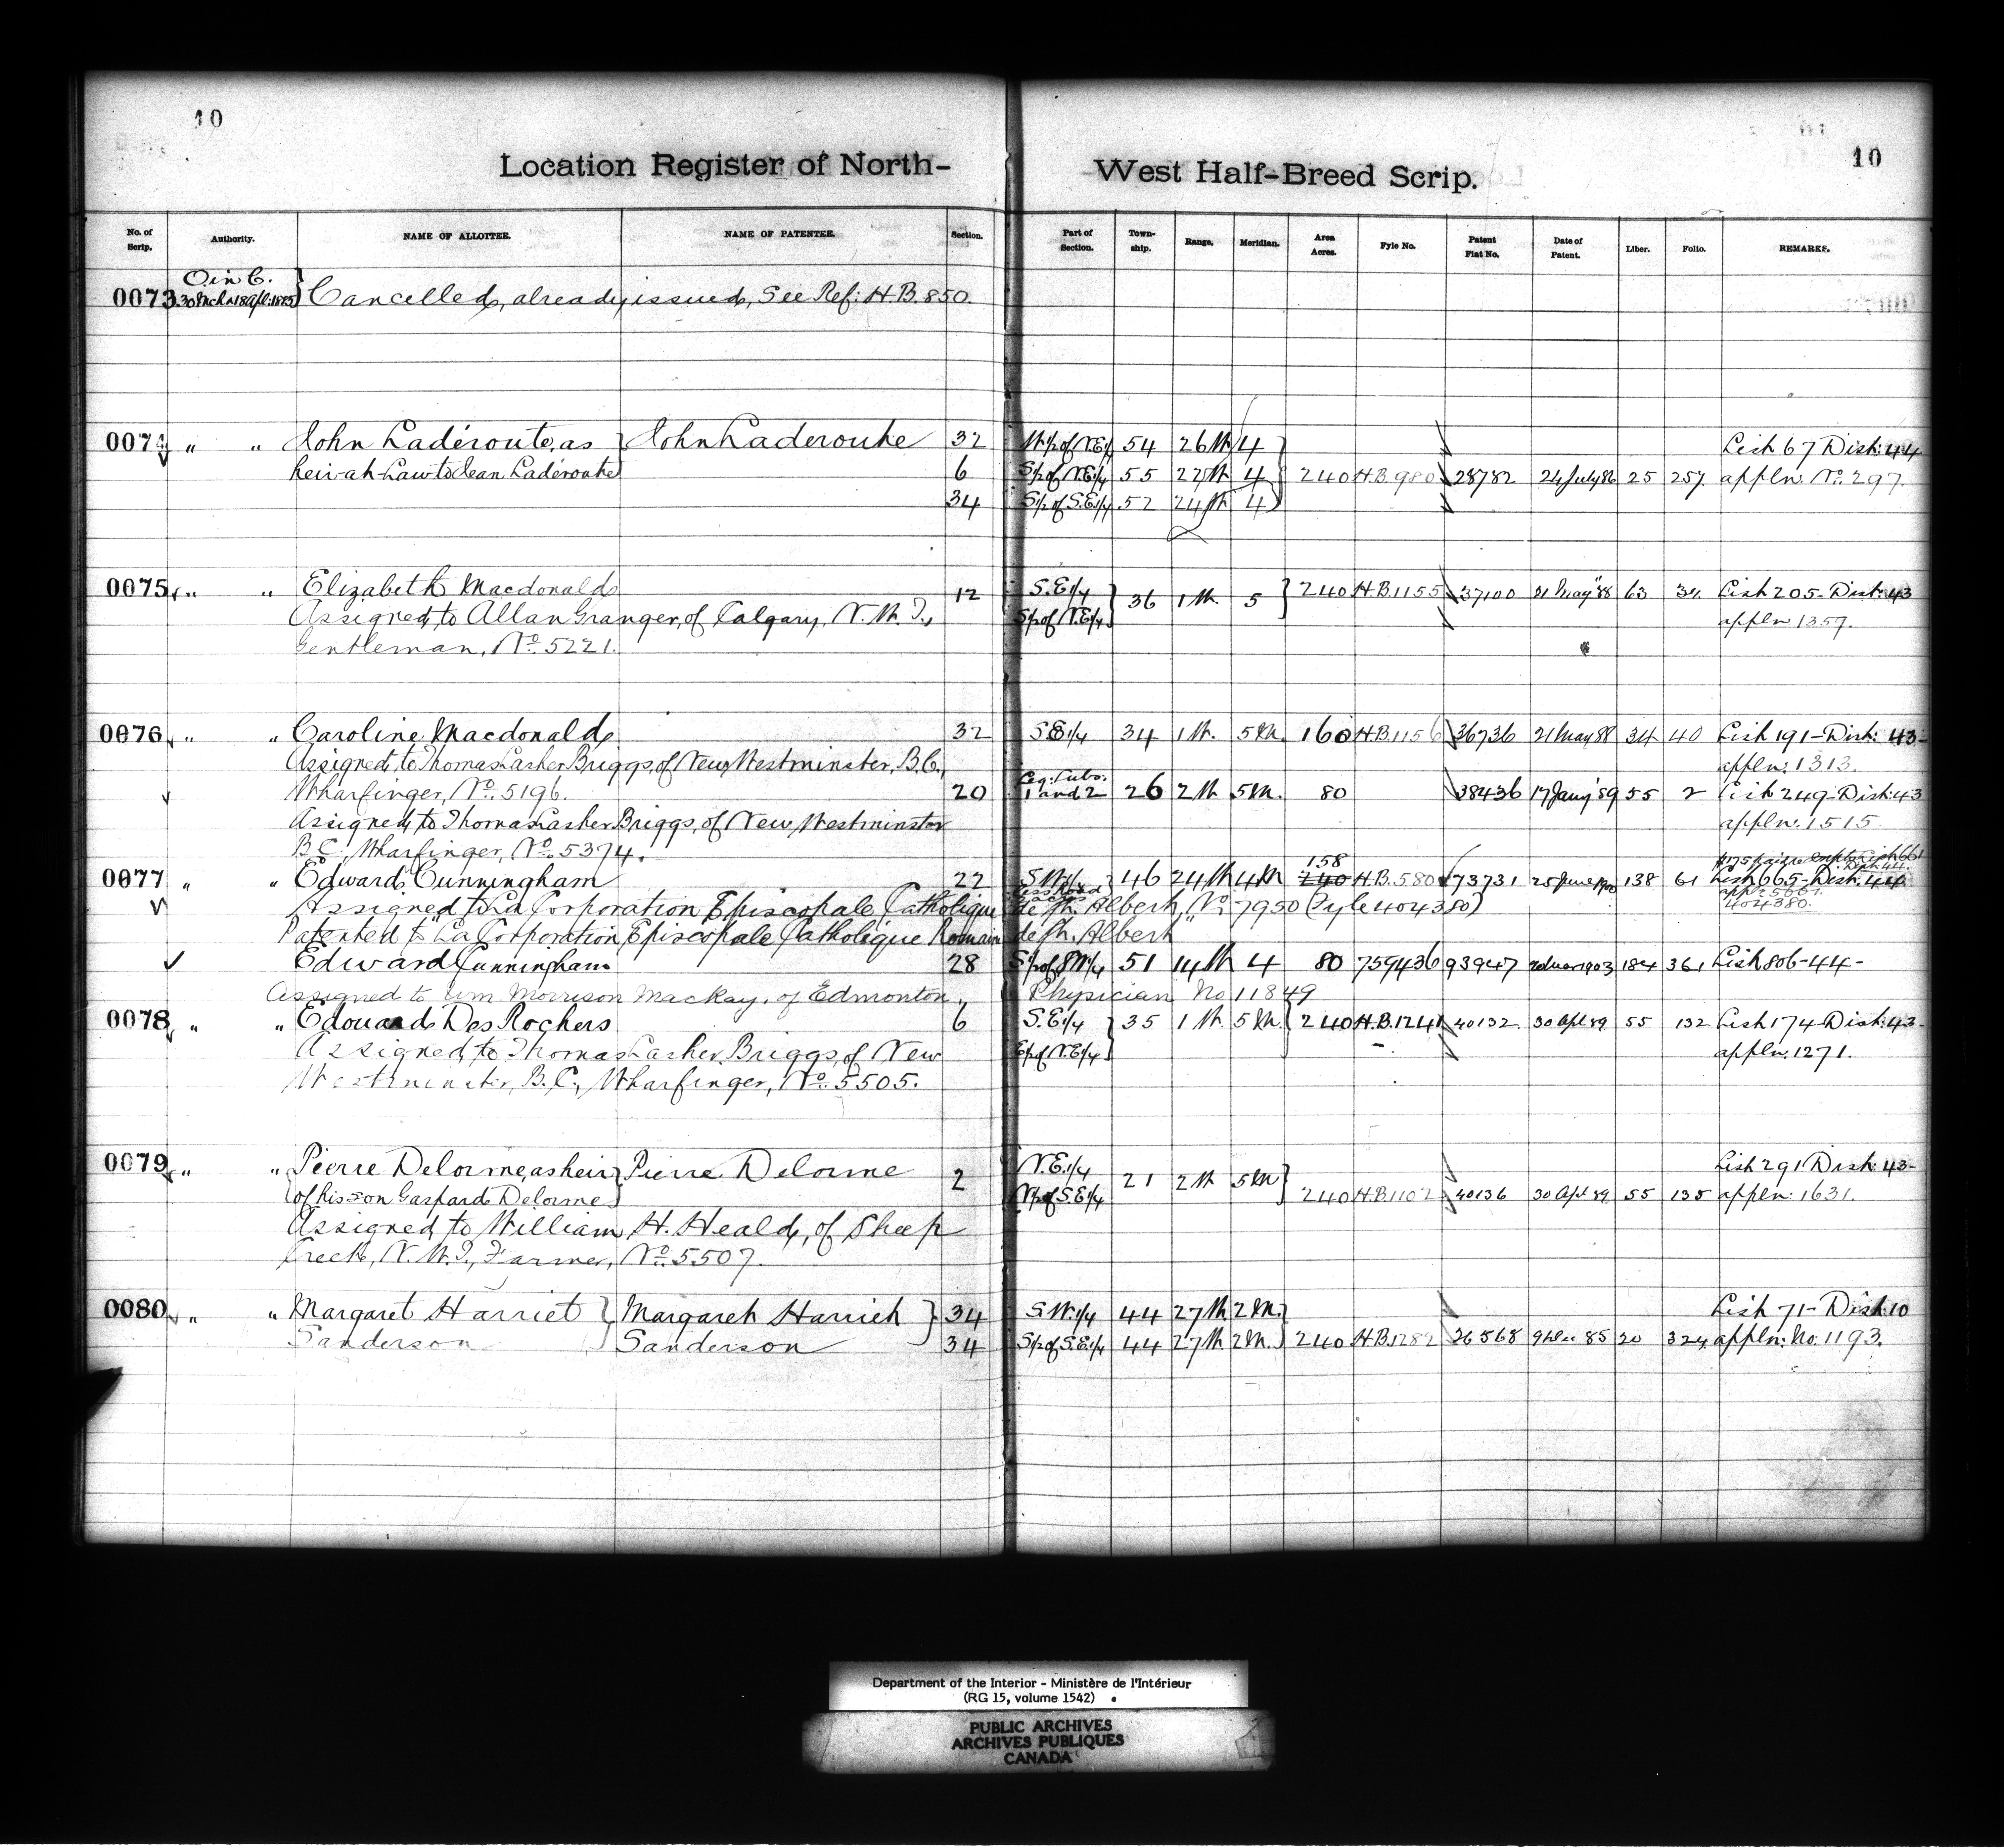 10
10
Location Register of North-West Half-Breed Scrip.
No. of Scrip. Authority. NAME OF ALLOTTEE. NAME OF PATENTEE. Section. Part of Section. Town-ship. Range. Meridian. Area Acres. Fyle No. Patent Fiat No. Date of Patent. Liber. Folio. REMARKS.
O in C.
0073 30 Mch & 18 Apl: 1885 } Cancelled, already issued, See Ref: H.B. 850.
0074 " " John Laderoute, as } John Laderoute 32 W½ of N.E¼ 54 26 W 4 List 67 Dist: 44
heir-at-Law to Jean Laderoute 6 S½ of N.E¼ 55 27 W 4 240 H.B. 980 28782 24 July 86 25 257 appln. No. 297.
34 S½ of S.E¼ 52 24 W 4
0075 " " Elizabeth Macdonald 12 S.E¼ } 36 1 W. 5 } 240 H.B. 1155 37100 21 May '88 63 34 List 205 - Dist: 43
Assigned to Allan Granger, of Calgary, N.W.T., S½ of N.E¼ appln 1357.
Gentleman, No. 5221.
0076 " " Caroline Macdonald 32 S.E¼ 34 1 W. 5 M. 160 H.B. 1156 36736 21 May 88 34 40 List 191 - Dist: 43-
Assigned to Thomas Lasher Briggs, of New Westminster, B.C., appln: 1313.
Wharfinger, No. 5196. 20 Leg: Subs: 1 and 2 26 2 W 5 M. 80 38436 17 Jany 89 55 2 List 249 - Dist: 43
Assigned to Thomas Lasher Briggs, of New Westminster appln: 1515.
B.C., Wharfinger, No. 5374.
158
0077 " " Edward Cunningham 22 S.W¼ 46 24 W 4 M 240 H.B. 580 73731 25 June 1900 138 61 List 665 - Dist. 44
Assigned to La Corporation Episcopale Catholique de St. Albert, No. 7950 (Fyle 404380) 404380.
Patented to La Corporation Episcopale Catholique Romaine de St. Albert
Edward Cunningham 28 S½ of S.W¼ 51 14 W 4 80 759436 93947 1903 184 361 List 806-44-
Assigned to Wm Morrison MacKay, of Edmonton, Physician No 11849
0078 " " Edouard Des Rochers 6 S.E¼ } 35 1 W. 5 M. { 240 H.B. 1241 40132 30 Apl 89 55 132 List 174 - Dist: 43-
Assigned to Thomas Lasher Briggs, of New E½ of N.E¼ appln. 1271.
Westminster, B.C., Wharfinger, No. 5505.
0079 " " Pierre Delorme, as heir } Pierre Delorme 2 N.E¼ 21 2 W 5 M List 291 Dist: 43-
of his son Gaspard Delorme N½ of S.E¼ 240 H.B. 1102 40136 30 Apl 89 55 135 appln: 1631.
Assigned to William H. Heald, of Sheep
Creek, N.W.T., Farmer, No. 5507.
0080 " " Margaret Harriet } Margaret Harriet } 34 S.W¼ 44 27 W 2 M. List 71 - Dist: 10
Sanderson Sanderson 34 S½ of S.E¼ 44 27 W 2 M. 240 H.B. 1282 26568 9 Dec 85 20 324 appln: No. 1193.
Department of the Interior - Ministère de l'Intérieur
(RG 15, volume 1542)
PUBLIC ARCHIVES
ARCHIVES PUBLIQUES
CANADA